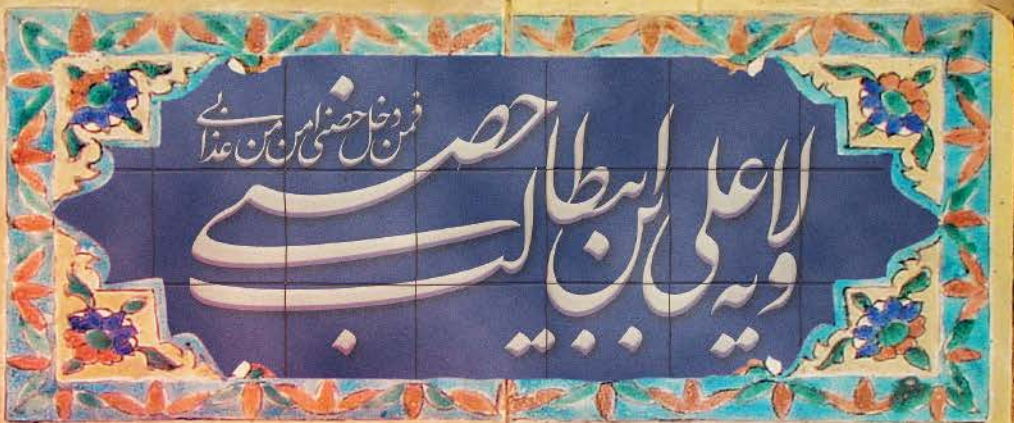 ولایه علی ابن ابیطالب حصنی
فمن دخل حصنی امن من عذابی